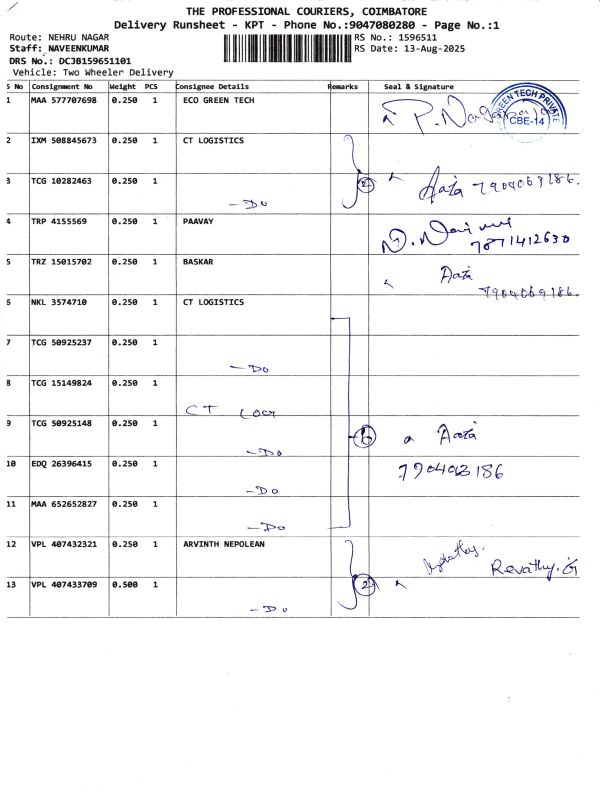 THE PROFESSIONAL COURIERS, COIMBATORE
Delivery Runsheet - KPT - Phone No.:9047080280 - Page No.:1
Route: NEHRU NAGAR RS No.: 1596511
Staff: NAVEENKUMAR RS Date: 13-Aug-2025
DRS No.: DCJB159651101
Vehicle: Two Wheeler Delivery
S No Consignment No Weight PCS Consignee Details Remarks Seal & Signature
1 MAA 577707698 0.250 1 ECO GREEN TECH P. GREEN TECH PRIVATE CBE-14
2 IXM 508845673 0.250 1 CT LOGISTICS
3 TCG 10282463 0.250 1 - Do 2 7904069186.
4 TRP 4155569 0.250 1 PAAVAY 7871412630
5 TRZ 15015702 0.250 1 BASKAR
7904069186.
6 NKL 3574710 0.250 1 CT LOGISTICS
7 TCG 50925237 0.250 1 - Do
8 TCG 15149824 0.250 1 CT
9 TCG 50925148 0.250 1 - Do 6
10 EDQ 26396415 0.250 1 - Do
11 MAA 652652827 0.250 1 - Do
12 VPL 407432321 0.250 1 ARVINTH NEPOLEAN Revathy. G
13 VPL 407433709 0.500 1 - Do 2